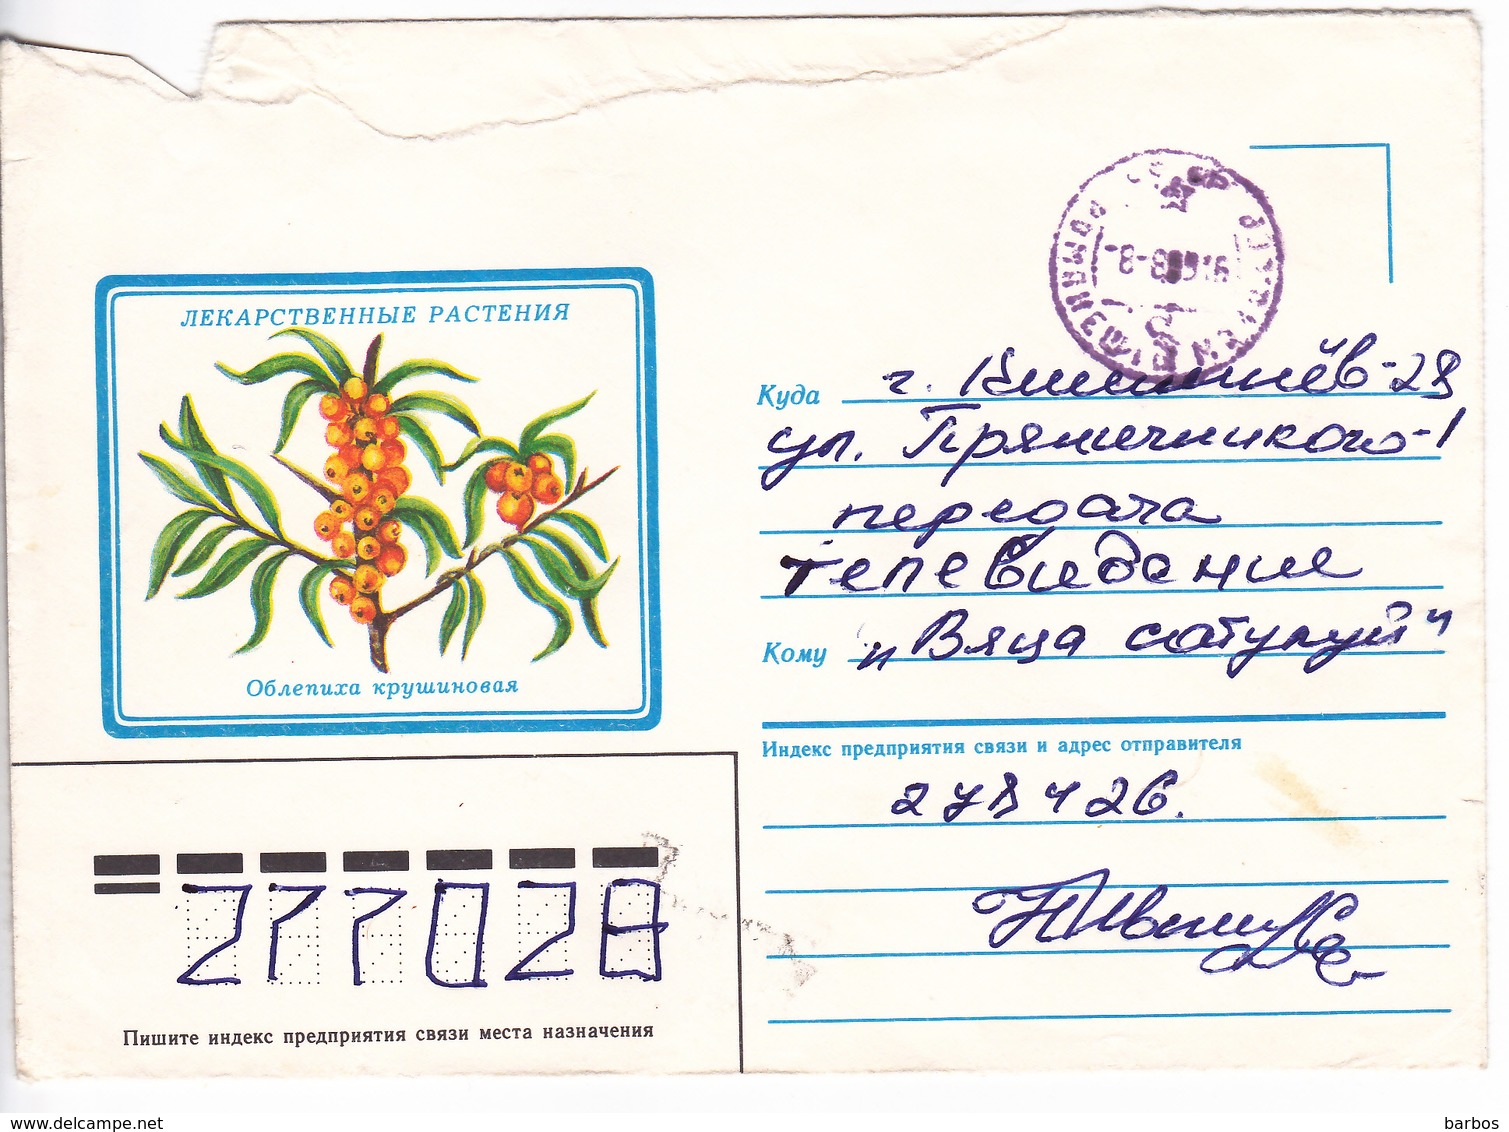 ЛЕКАРСТВЕННЫЕ РАСТЕНИЯ
Облепиха крушиновая
Куда г. Кишинёв-28
ул. Пряничникого-1
передача
телевидение
Кому "Вяца сатулуй"
Индекс предприятия связи и адрес отправителя
278426.
277028
Пишите индекс предприятия связи места назначения
delcampe.net
barbos